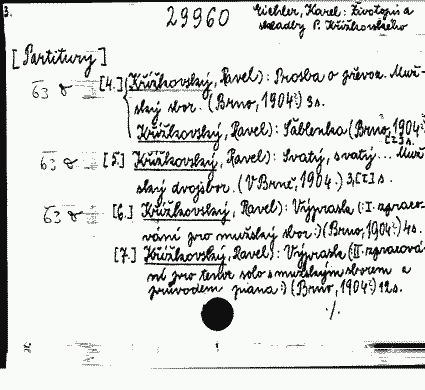 3.
29960 Eichler, Karel: Životopis a
skladby P. Křížkovského
[Partitury]
63 [4.] Křížkovský, Pavel): Prosba o převoz. Muž-
ský sbor. (Brno, 1904:) 3s.
Křížkovský, Pavel): Šáblenka (Brno, 1904:)
[2] s.
63 [5.] Křížkovský, Pavel): Svatý, svatý... Muž-
ský dvojsbor. (V Brně, 1904.) 3,[1] s.
63 [6.] Křížkovský, Pavel): Výprask (: I. zpraco-
vání pro mužský sbor:) (Brno, 1904:) 4s.
[7.] Křížkovský, Pavel): Výprask (: II. zpracová-
ní pro tenor solo s mužským sborem a
průvodem piana:) (Brno, 1904:) 12s.
./.